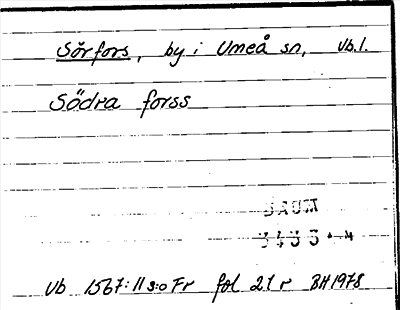 Sörfors, by i Umeå sn, Vb.l.
Södra forss
DAUM
3433
Vb 1567:11 s:o Fr fol 21 r BH 1978